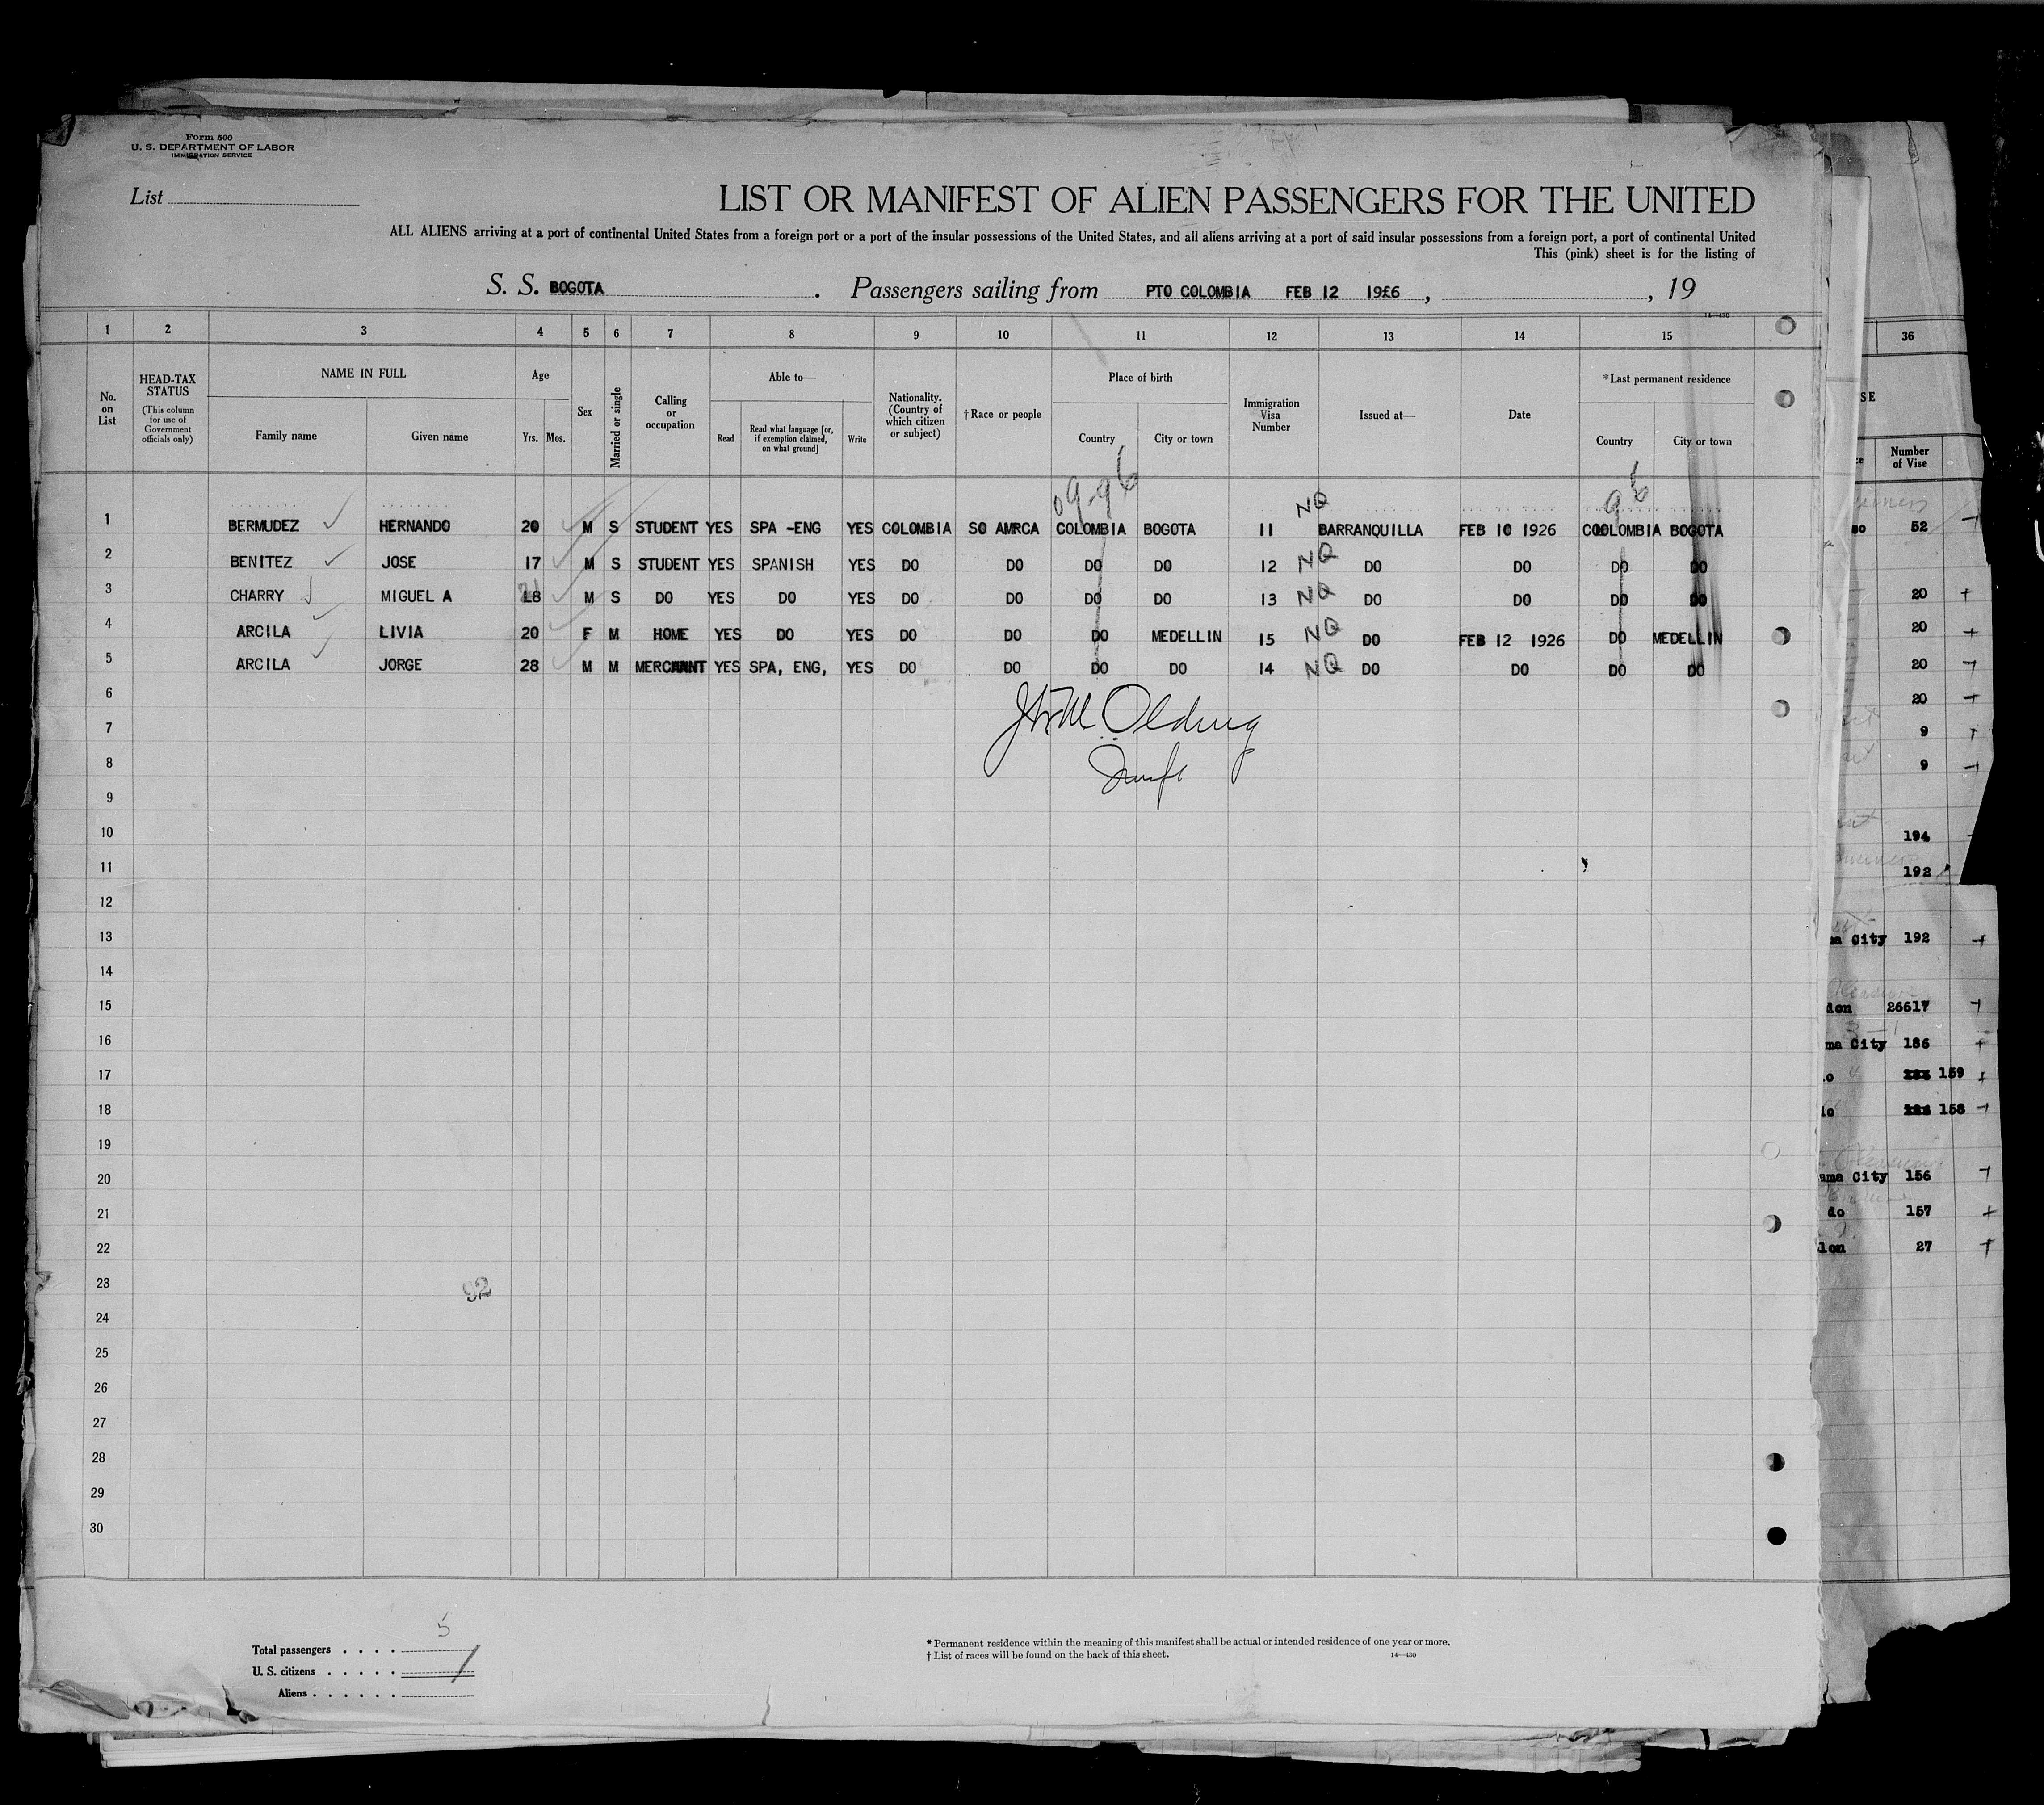 Form 500
U. S. DEPARTMENT OF LABOR
IMMIGRATION SERVICE
List
LIST OR MANIFEST OF ALIEN PASSENGERS FOR THE UNITED
ALL ALIENS arriving at a port of continental United States from a foreign port or a port of the insular possessions of the United States, and all aliens arriving at a port of said insular possessions from a foreign port, a port of continental United
This (pink) sheet is for the listing of
S. S. BOGOTA. Passengers sailing from PTO COLOMBIA FEB 12 1926, , 19
14—430
1 2 3 4 5 6 7 8 9 10 11 12 13 14 15 36
No. on List
HEAD-TAX STATUS
(This column for use of Government officials only)
NAME IN FULL
Family name Given name
Age
Yrs. Mos.
Sex
Married or single
Calling or occupation
Able to—
Read
Read what language [or, if exemption claimed, on what ground]
Write
Nationality. (Country of which citizen or subject)
†Race or people
Place of birth
Country City or town
Immigration Visa Number
Issued at—
Date
*Last permanent residence
Country City or town
SE
Number of Vise
09-96 96
1 BERMUDEZ HERNANDO 20 M S STUDENT YES SPA -ENG YES COLOMBIA SO AMRCA COLOMBIA BOGOTA 11 NQ BARRANQUILLA FEB 10 1926 COOLOMBIA BOGOTA 52
2 BENITEZ JOSE 17 M S STUDENT YES SPANISH YES DO DO DO DO 12 NQ DO DO DO DO
3 CHARRY MIGUEL A 18 M S DO YES DO YES DO DO DO DO 13 NQ DO DO DO DO 20
4 ARCILA LIVIA 20 F M HOME YES DO YES DO DO DO MEDELLIN 15 NQ DO FEB 12 1926 DO MEDELLIN 20
5 ARCILA JORGE 28 M M MERCHANT YES SPA, ENG, YES DO DO DO DO 14 NQ DO DO DO DO 20
6 20
7 Olding 9
8 9
9
10 194
11 192
12
13 ma City 192
14
15 lon 26617
16 ma City 186
17 159
18 158
19
20 ama City 156
21 do 157
22 lon 27
23 92
24
25
26
27
28
29
30
5
Total passengers . . . .
U. S. citizens . . . . .
Aliens . . . . . .
* Permanent residence within the meaning of this manifest shall be actual or intended residence of one year or more.
† List of races will be found on the back of this sheet. 14—430